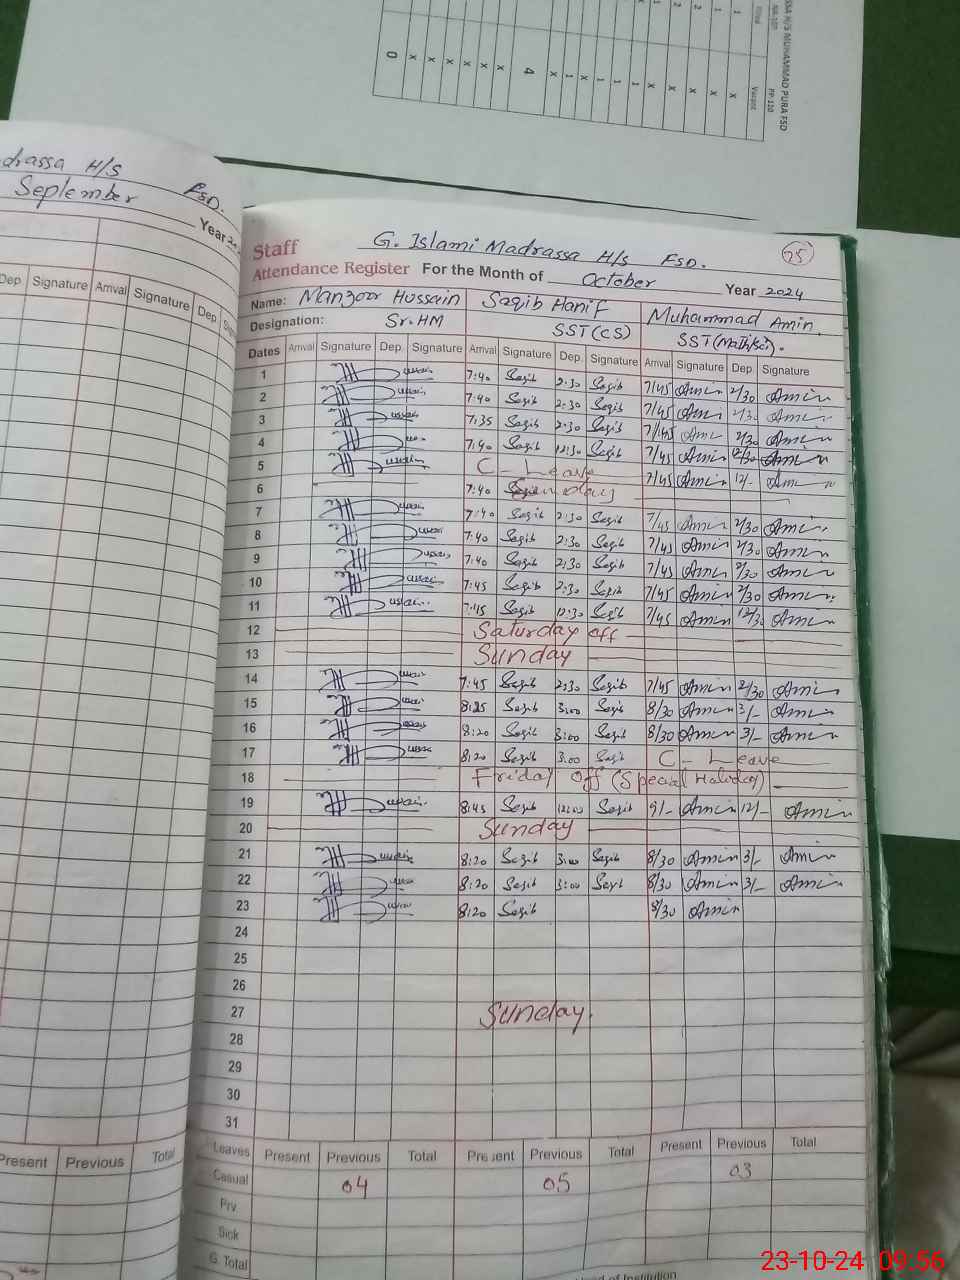 SSA H/S MUHAMMAD PURA FSD
PP-110
Vacant
0 x x x x x x 4 x 1 x 1 1 1 x x x x x
drassa H/S FSD.
September
Year
Dep Signature Arrival Signature Dep.
Present Previous Total
G. Islami Madrassa H/s FSD. 75
Staff
Attendance Register For the Month of October Year 2024
Name: Manzoor Hussain Saqib Hanif Muhammad Amin
Designation: Sr.HM SST(CS) SST(Math/sci).
Dates Arrival Signature Dep. Signature Arrival Signature Dep. Signature Arrival Signature Dep. Signature
1 7:40 Saqib 2:30 Saqib 7/45 Amin 2/30 Amin
2 7:40 Saqib 2:30 Saqib 7/45 Amin 2/30 Amin
3 7:35 Saqib 2:30 Saqib 7/45 Amin 2/30 Amin
4 7:40 Saqib 12:30 Saqib 7/45 Amin 12/30 Amin
5 C- Leave 7/45 Amin 12/- Amin
6 7:40 Sunday
7 7:40 Saqib 2:30 Saqib 7/45 Amin 2/30 Amin
8 7:40 Saqib 2:30 Saqib 7/45 Amin 2/30 Amin
9 7:40 Saqib 2:30 Saqib 7/45 Amin 2/30 Amin
10 7:45 Saqib 2:30 Saqib 7/45 Amin 2/30 Amin
11 7:45 Saqib 12:30 Saqib 7/45 Amin 12/30 Amin
12 Saturday off
13 Sunday
14 7:45 Saqib 2:30 Saqib 7/45 Amin 2/30 Amin
15 8:25 Saqib 3:00 Saqib 8/30 Amin 3/- Amin
16 8:20 Saqib 3:00 Saqib 8/30 Amin 3/- Amin
17 8:20 Saqib 3:00 Saqib C- Leave
18 Friday off (Special Holiday)
19 8:45 Saqib 12:00 Saqib 9/- Amin 12/- Amin
20 Sunday
21 8:20 Saqib 3:00 Saqib 8/30 Amin 3/- Amin
22 8:20 Saqib 3:00 Saqib 8/30 Amin 3/- Amin
23 8:20 Saqib 8/30 Amin
24
25
26
27 Sunday.
28
29
30
31
Leaves Present Previous Total Present Previous Total Present Previous Total
Casual 04 05 03
Prv
Sick
G. Total
of Institution
23-10-24 09:56